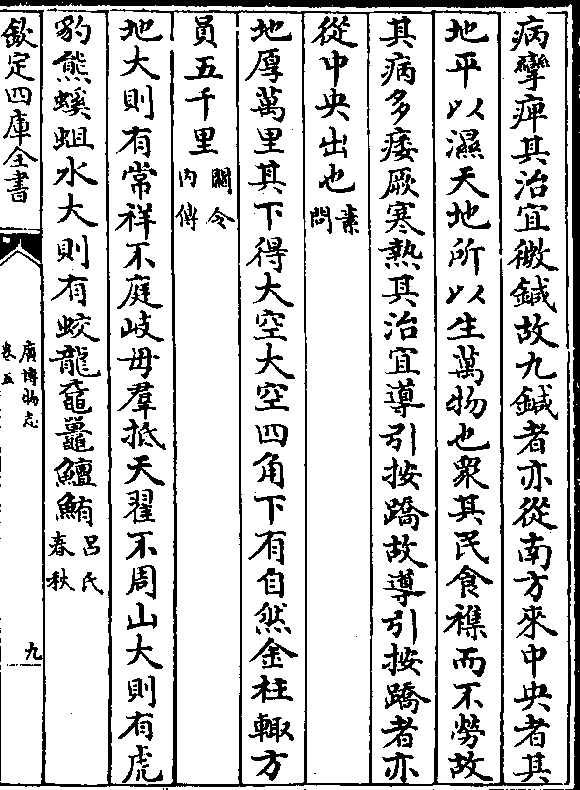 病攣痺其治宜微鍼故九鍼者亦從南方來中央者其
地平以濕天地所以生萬物也衆其民食襍而不勞故
其病多痿厥寒熱其治宜導引按蹻故導引按蹻者亦
從中央出也素問
地厚萬里其下得大空大空四角下有自然金柱輙方
員五千里關令内傳
地大則有常祥不庭岐毋羣抵天翟不周山大則有虎
豹熊螇蛆水大則有蛟龍黿鼉鱣鮪呂氏春秋
欽定四庫全書
廣博物志
卷五
九